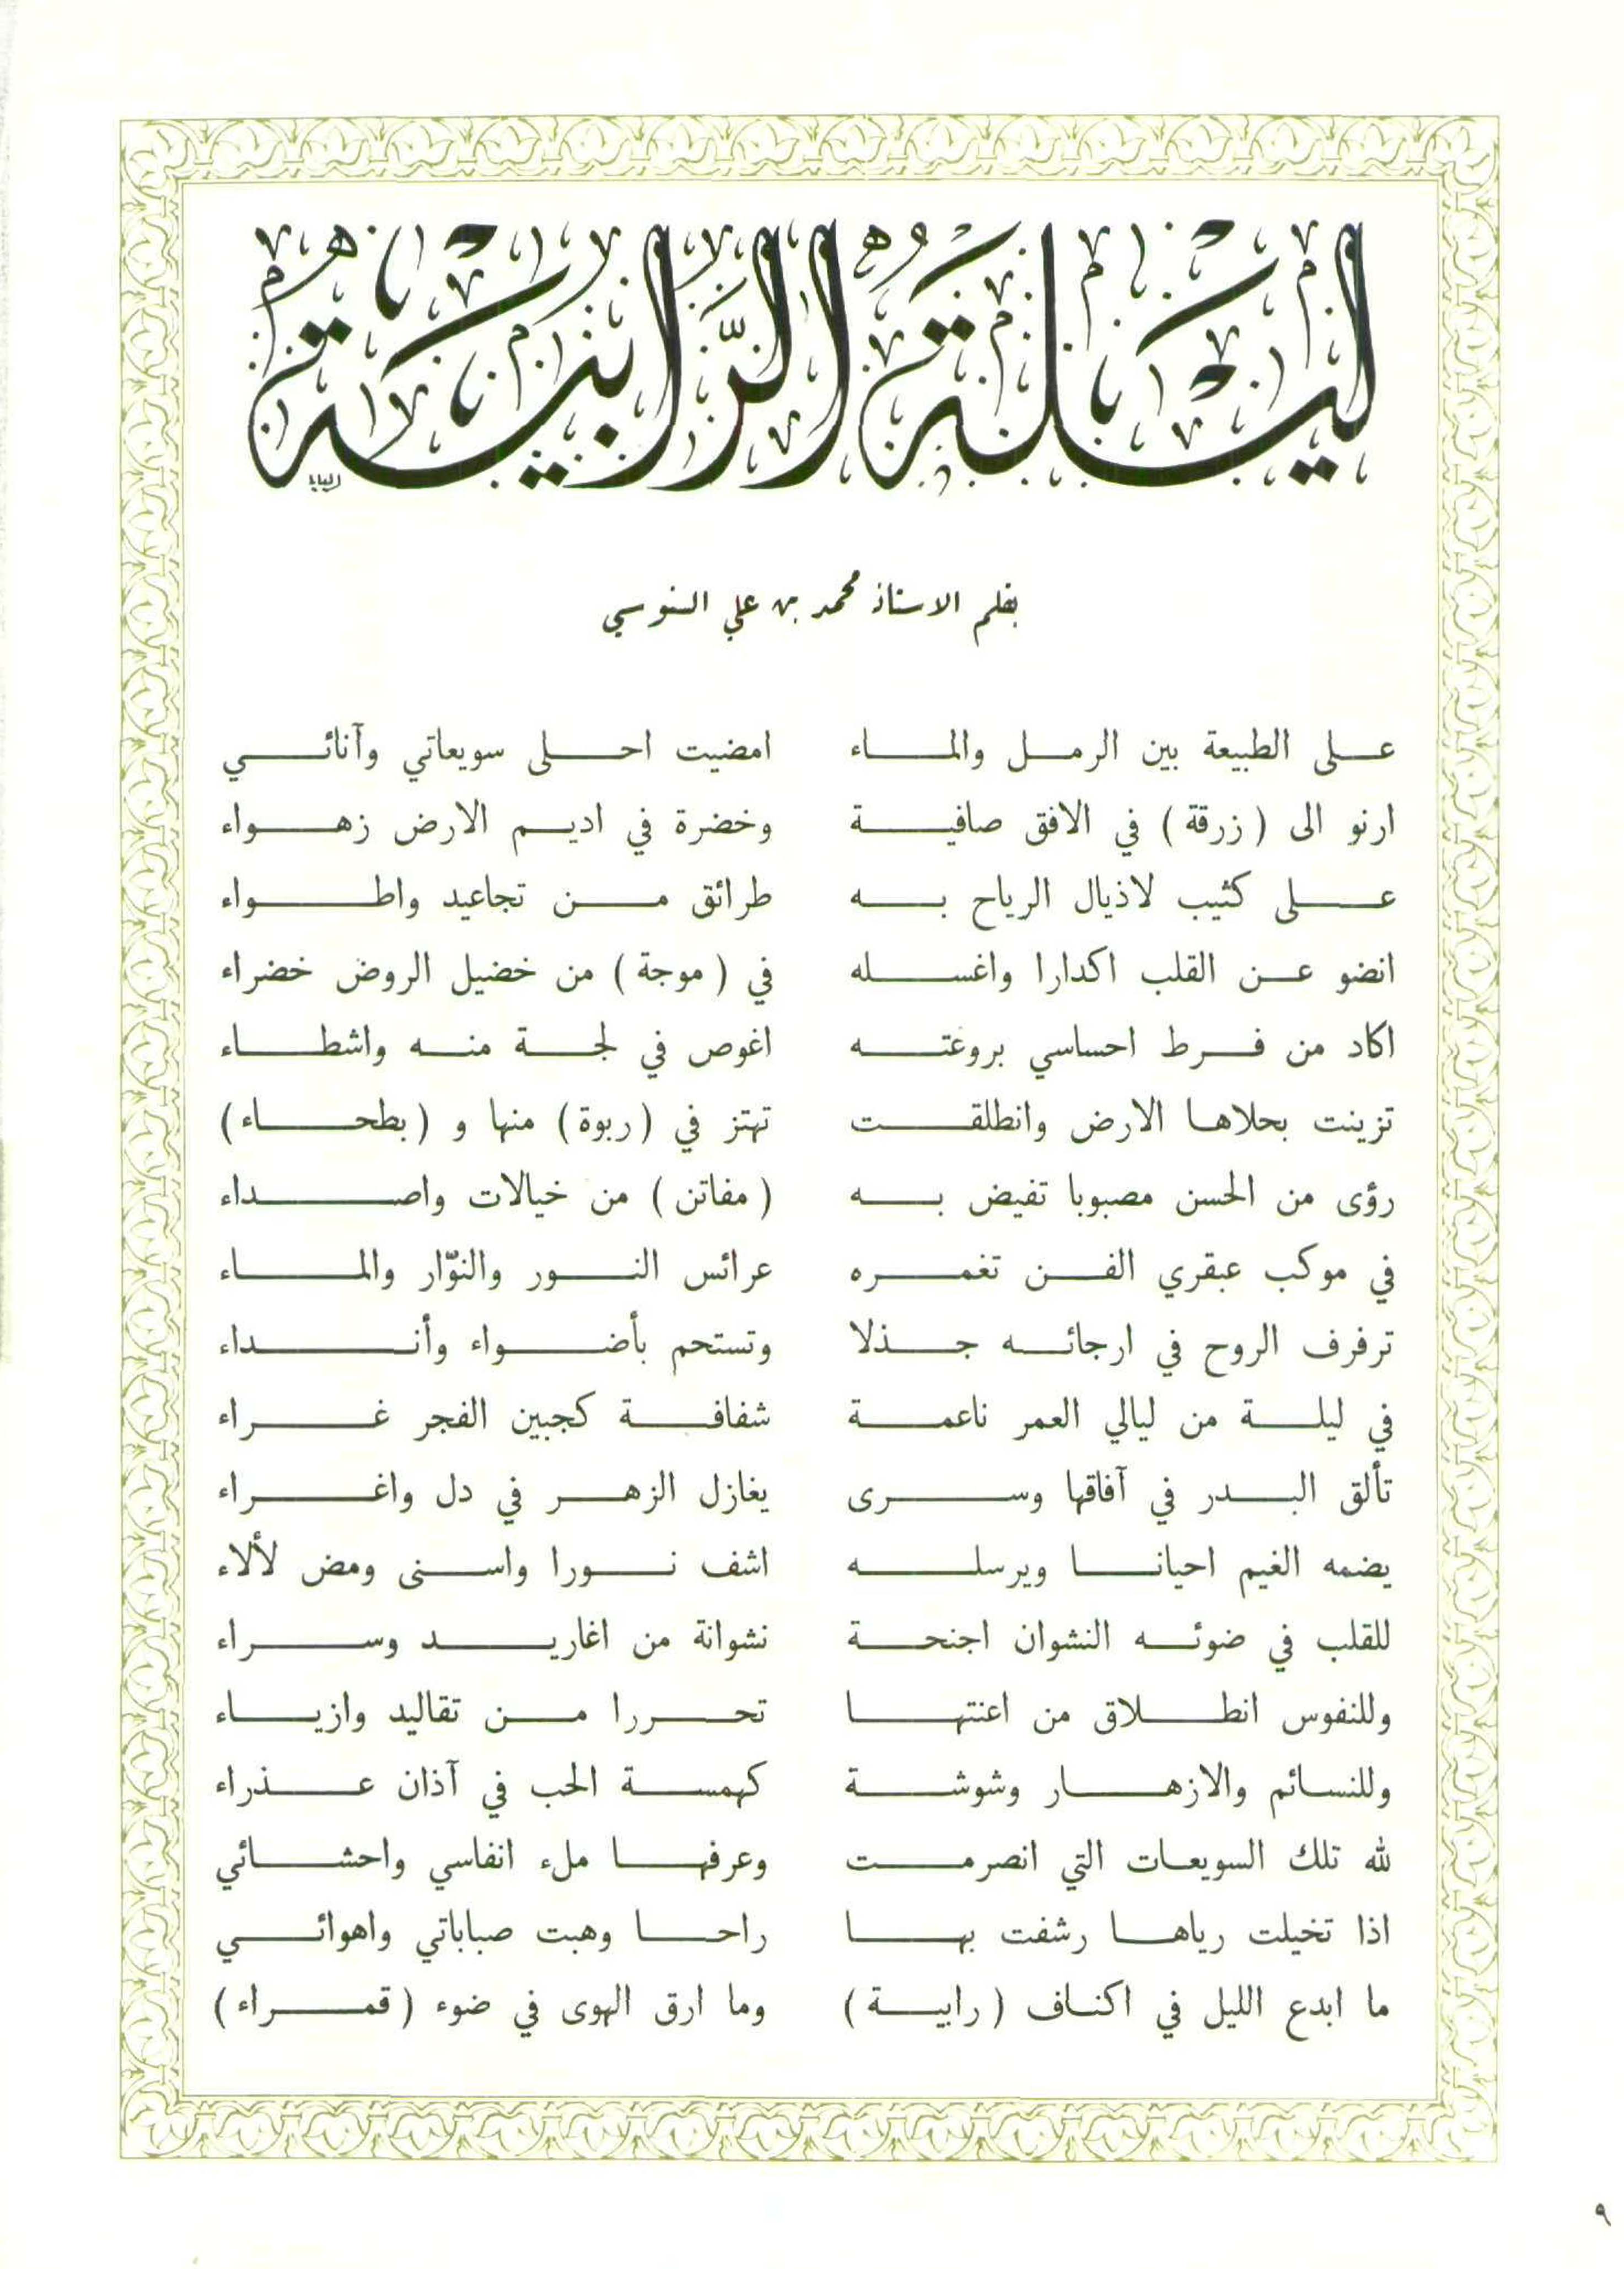 ليلة الرابية
بقلم الاستاذ محمد بن علي السنوسي
على الطبيعة بين الرمل والماء امضيت احلى سويعاتي وآنائي
ارنو الى ( زرقة ) في الافق صافية وخضرة في اديم الارض زهواء
على كثيب لاذيال الرياح به طرائق من تجاعيد واطواء
انضو عن القلب اكدارا واغسله في ( موجة ) من خضيل الروض خضراء
اكاد من فرط احساسي بروعته اغوص في لجة منه واشطاء
تزينت بحلاها الارض وانطلقت تهتز في (ربوة) منها و (بطحاء)
رؤى من الحسن مصبوبا تفيض به ( مفاتن ) من خيالات واصداء
في موكب عبقري الفن تغمره عرائس النور والنوّار والماء
ترفرف الروح في ارجائه جذلا وتستحم بأضواء وأنداء
في ليلة من ليالي العمر ناعمة شفافة كجبين الفجر غراء
تألق البدر في آفاقها وسرى يغازل الزهر في دل واغراء
يضمه الغيم احيانا ويرسله اشف نورا واسنى ومض لألاء
للقلب في ضوئه النشوان اجنحة نشوانة من اغاريد وسراء
وللنفوس انطلاق من اعنتها تحررا من تقاليد وازياء
وللنسائم والازهار وشوشة كهمسة الحب في آذان عذراء
لله تلك السويعات التي انصرمت وعرفها ملء انفاسي واحشائي
اذا تخيلت رياها رشفت بها راحا وهبت صباباتي واهوائي
ما ابدع الليل في اكناف ( رابية ) وما ارق الهوى في ضوء ( قمراء )
٩